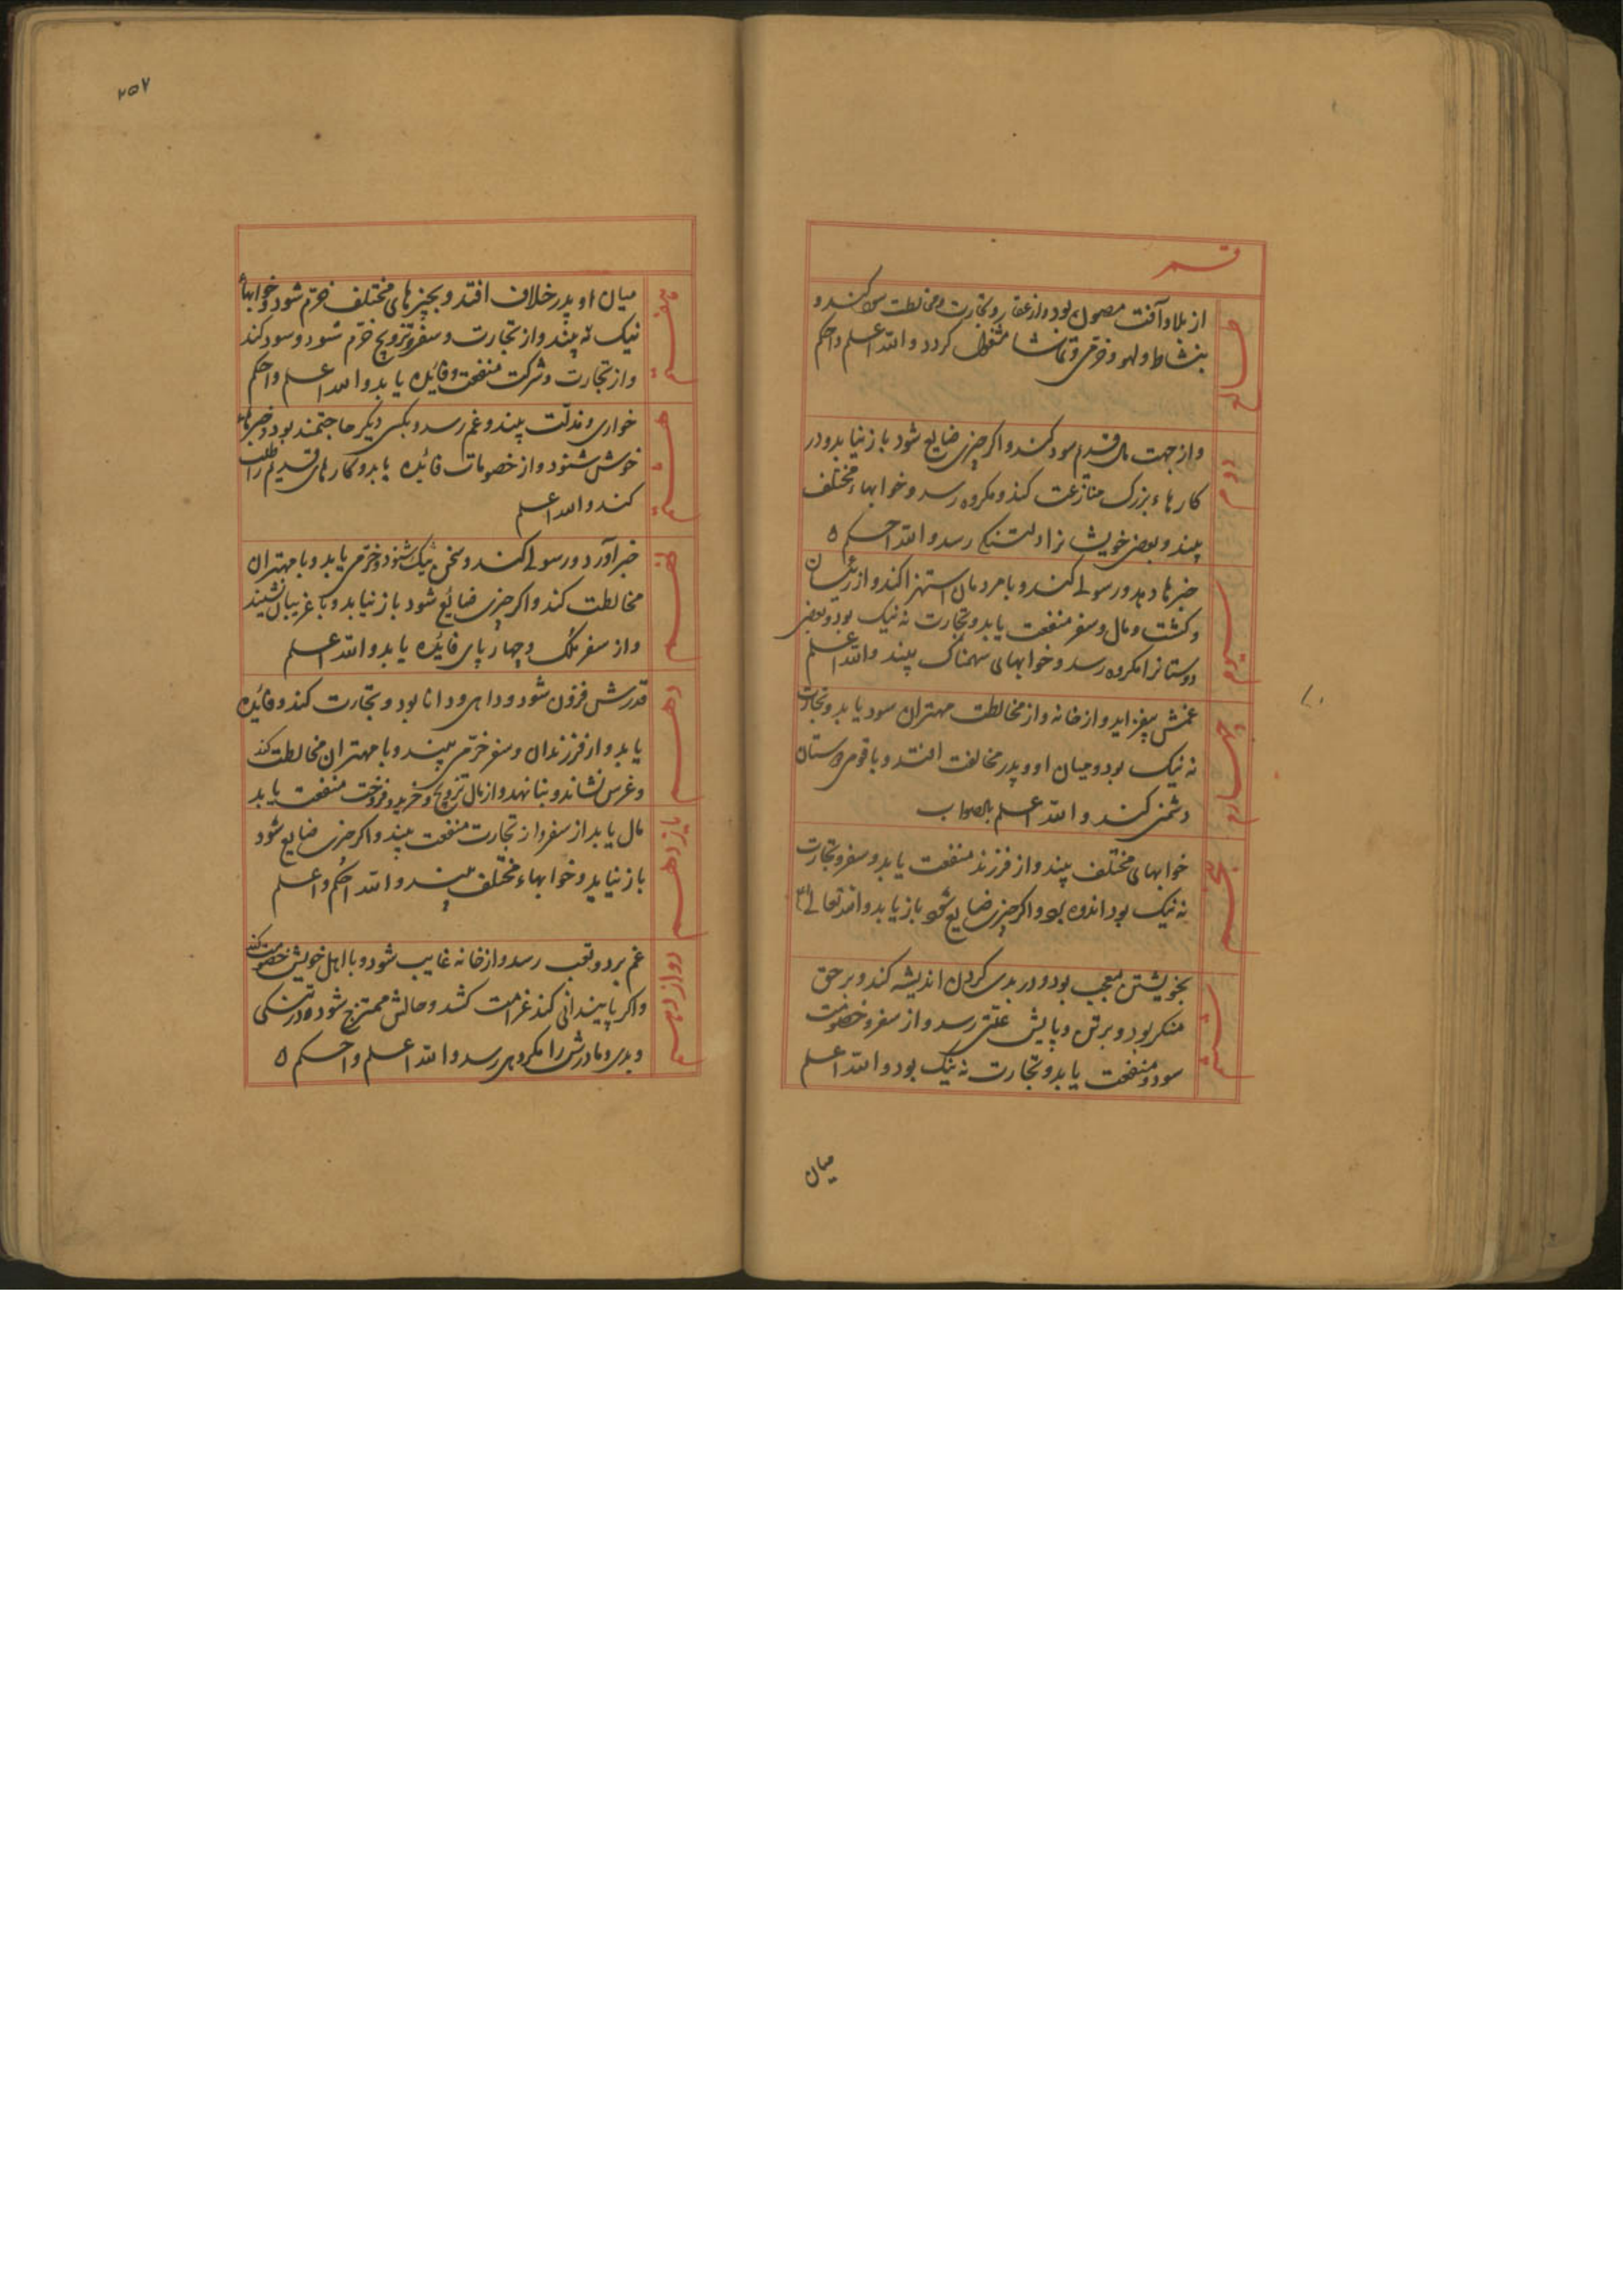 قسم
طالع
از بلا و آفت مصون بود و از عقار و تجارت و مخالطت سود کند و
بنشاط و لهو و خرمی و تماشا مشغول کردد والله اعلم واحکم
دوم
و از جهت مال قدیم سود کند و اکر چیزی ضایع شود باز نیابد و در
کارهاء بزرک منازعت کند و مکروه رسد و خوابهاء مختلف
بیند و بعضی خویشانرا دلتنکی رسد والله احکم ٥
سیوم
خبرها دهد و رسولی کند و با مردمان استهزا کند و از
و کشت و مال و سفر منفعت یابد و تجارت نه نیک بود و بعضی
دوستانرا مکروه رسد و خوابهای سهمناک بیند والله اعلم
چهارم
غمش بیفزاید و از خانه و از مخالطت مهتران سود یابد و تجارت
نه نیک بود و میان او و پدر مخالفت افتد و با قومی دوستان
دشمنی کند والله اعلم بالصواب
پنجم
خوابهای مختلف بیند و از فرزند منفعت یابد و سفر و تجارت
نه نیک بود اندوه بود و اکر چیزی ضایع شود باز یابد والله تعالی
ششم
بخویشتن معجب بود و در بدی کردن اندیشه کند و بر حق
منکر بود و برتن و پایش علتی رسد و از سفر و خصومت
سود و منفعت یابد و تجارت نه نیک بود والله اعلم
میان
۲۵۷
هفتم
میان او و پدر خلاف افتد و بچیزهای مختلف خرم شود و خوابهاء
نیک نه بیند و از تجارت و سفر و تزویج خرم شود و سود کند
و از تجارت و شرکت منفعت و فائده یابد والله اعلم واحکم
هشتم
خواری و مذلت بیند و غم رسد و بکسی دیکر حاجتمند بود و خبرهاء
خوش شنود و از خصومات فائده یابد و کارهای قدیم را طلب
کند والله اعلم
نهم
خبر آورد و رسولی کند و سخن نیک شنود و خرمی یابد و با مهتران
مخالطت کند و اکر چیزی ضائع شود باز نیابد و با غریبان نشیند
و از سفر ملک و چهارپای فائده یابد والله اعلم
دهم
قدرش فزون شود و داهی و دانا بود و تجارت کند و فائده
یابد و از فرزندان و سفر خرمی بیند و با مهتران مخالطت کند
و غرس نشاند و بنا نهد و از مال تزویج و خرید و فروخت منفعت یابد
یازدهم
مال یابد از سفر و از تجارت منفعت بیند و اکر چیزی ضایع شود
باز نیابد و خوابهاء مختلف بیند والله احکم واعلم
دوازدهم
غم برد و تعب رسد و از خانه غایب شود و با اهل خویش خصومت کند
و اکر پایندانی کند غرامت کشد و حالش ممتزج شود
و بدی و مادرش را مکروهی رسد والله اعلم واحکم ٥